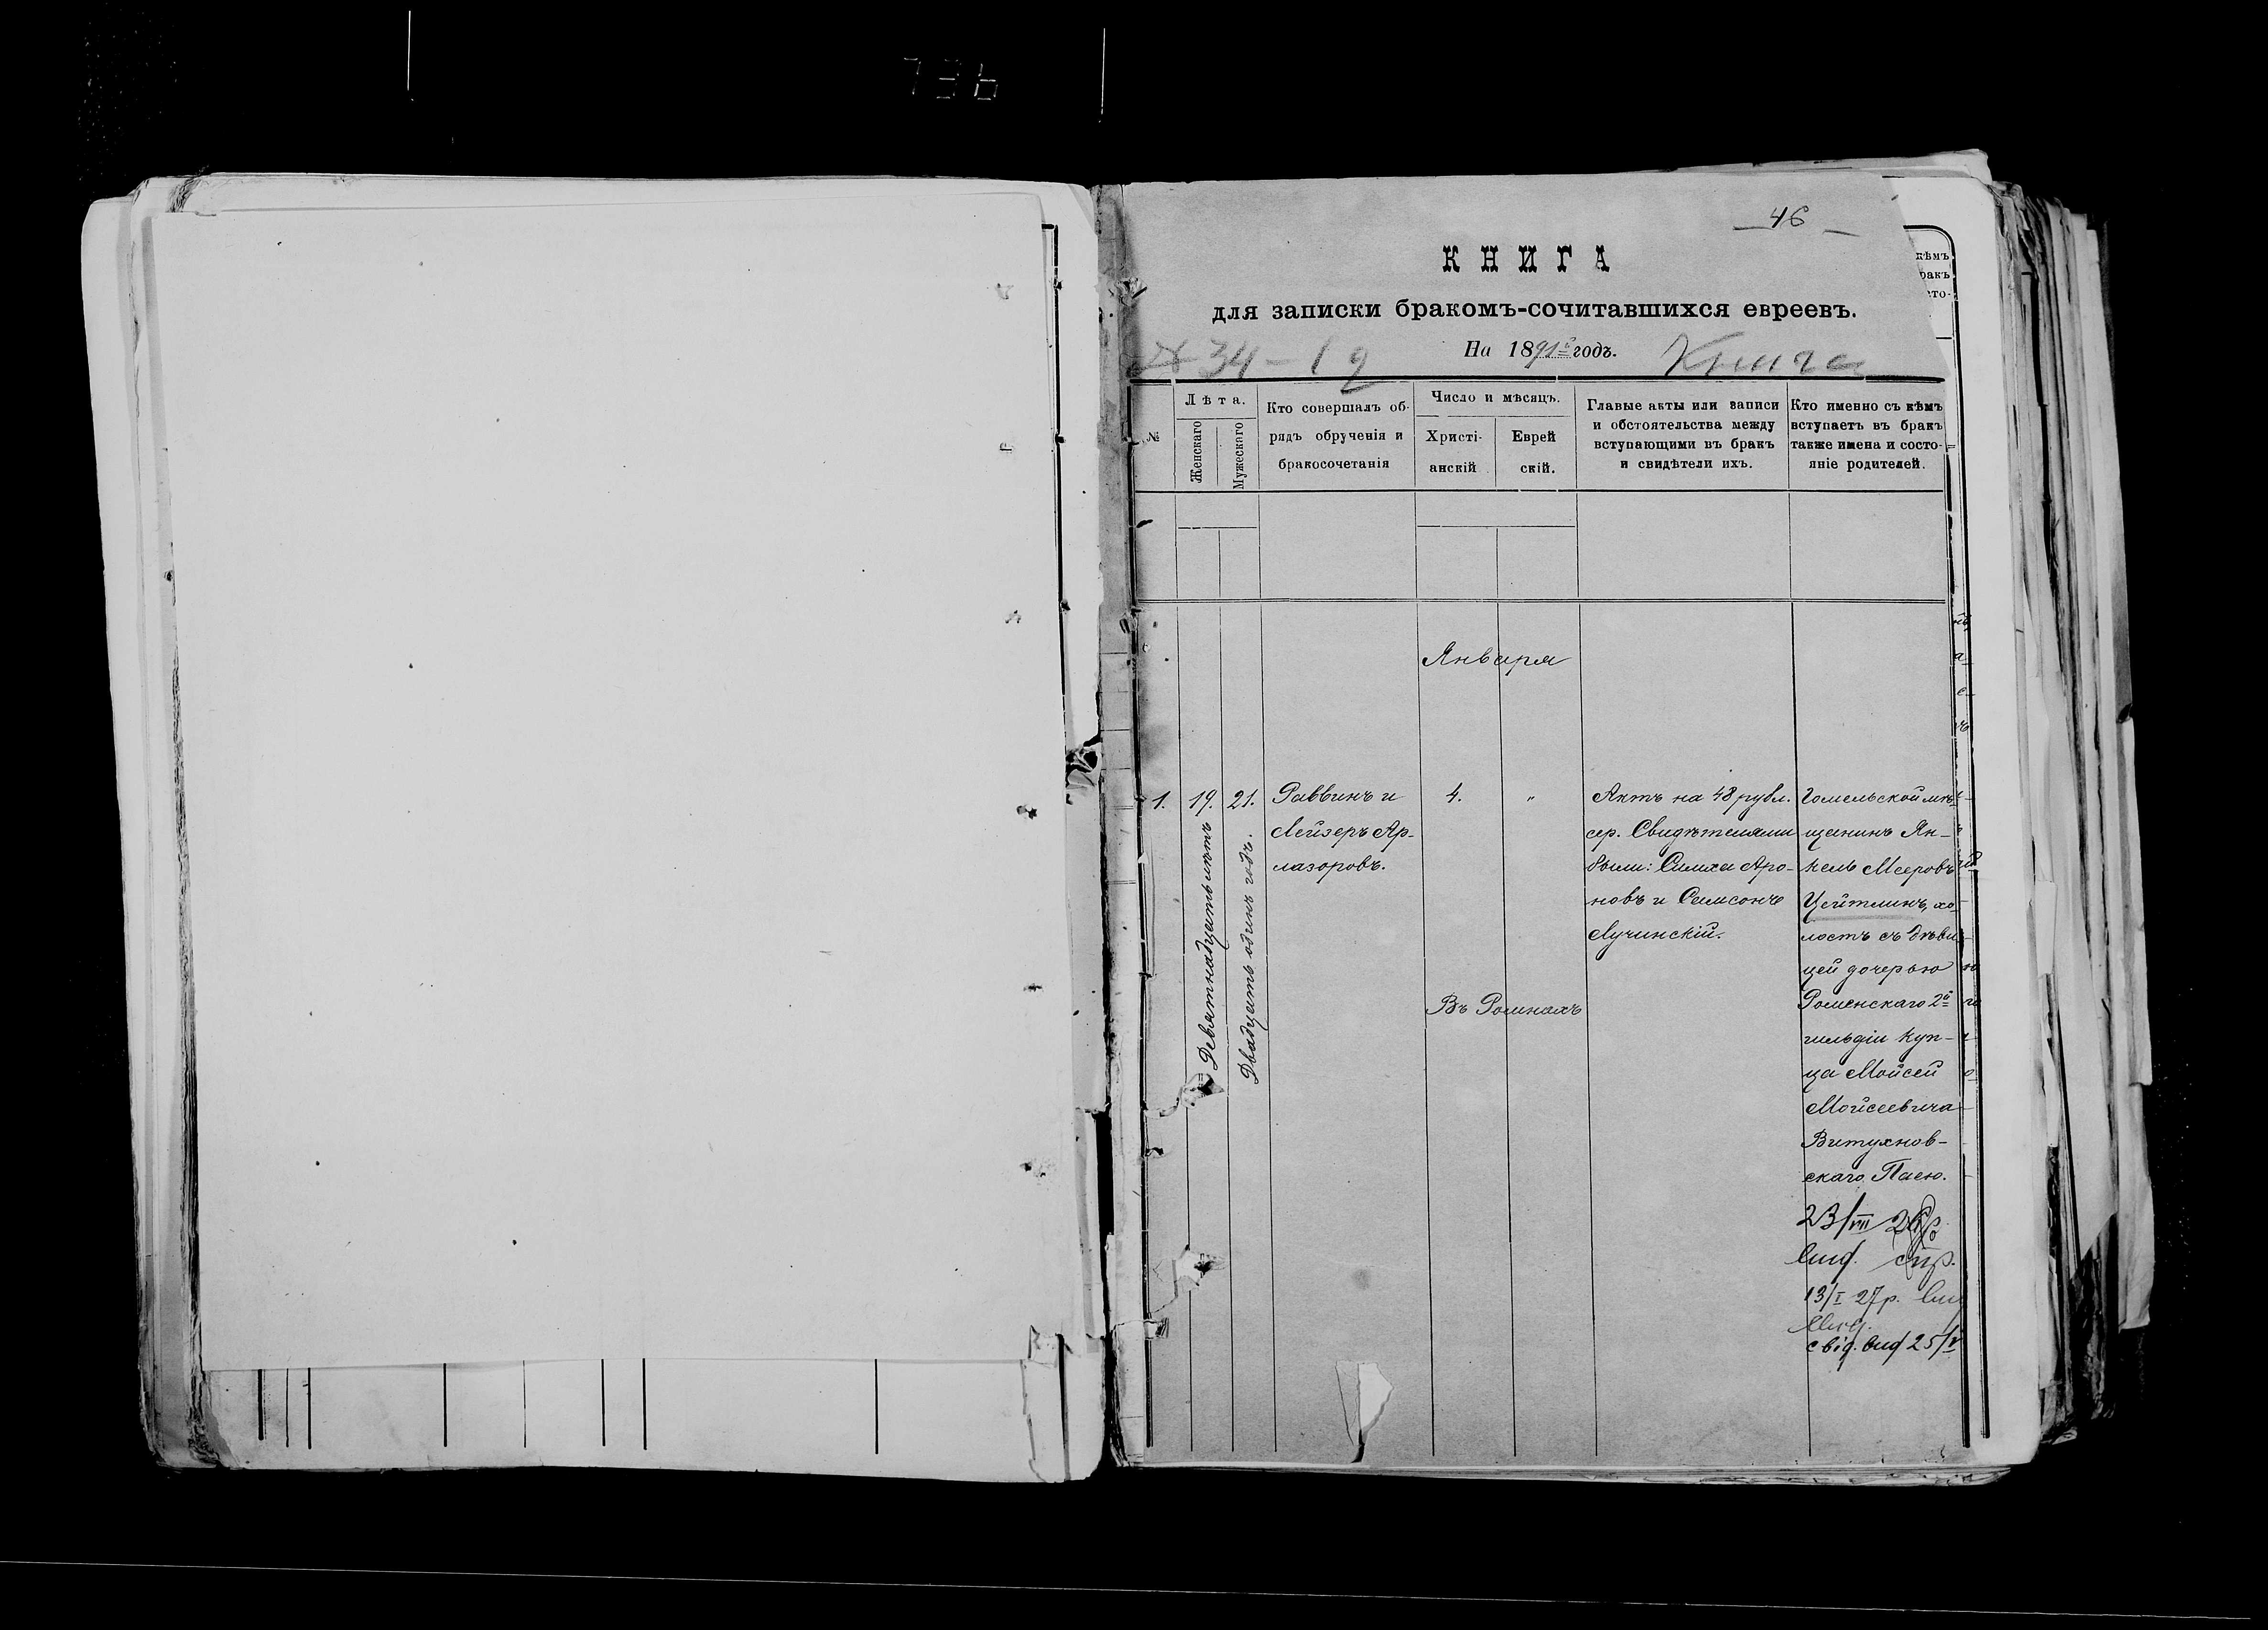 46
КНИГА
для записки бракомъ-сочитавшихся евреевъ.
На 1891й годъ.
№ 34-19 Книга
№
Лѣта.
Женскаго
Мужескаго
Кто совершалъ об-
рядъ обрученія и
бракосочетанія
Число и мѣсяцъ.
Христі-
анскій
Еврей
скій.
Главые акты или записи
и обстоятельства между
вступающими въ бракъ
и свидѣтели ихъ.
Кто именно съ кѣмъ
вступаетъ въ бракъ
также имена и состо-
яніе родителей.
кѣмъ
ракъ
сто-
Января
1.
19.
Девятнадцать лѣтъ
21.
Двадцать одинъ годъ.
Раввинъ и
Лейзеръ Ар-
лазоровъ.
4.
"
Въ Ромнахъ
Актъ на 48 рубл.
сер. Свидѣтелями
были: Симха Аро-
новъ и Самсонъ
Лучинскій.
Гомельской мѣ-
щанинъ Ян-
кель Мееровъ
Цейтлинъ, хо-
лостъ съ дѣви-
цей дочерью
Роменскаго 2й
гильдіи куп-
ца Мойсей
Мойсеевича
Витухнов-
скаго Пасю.
23/VIII 26 р.
вид.
13/I 27р.
свід. вид 25/V